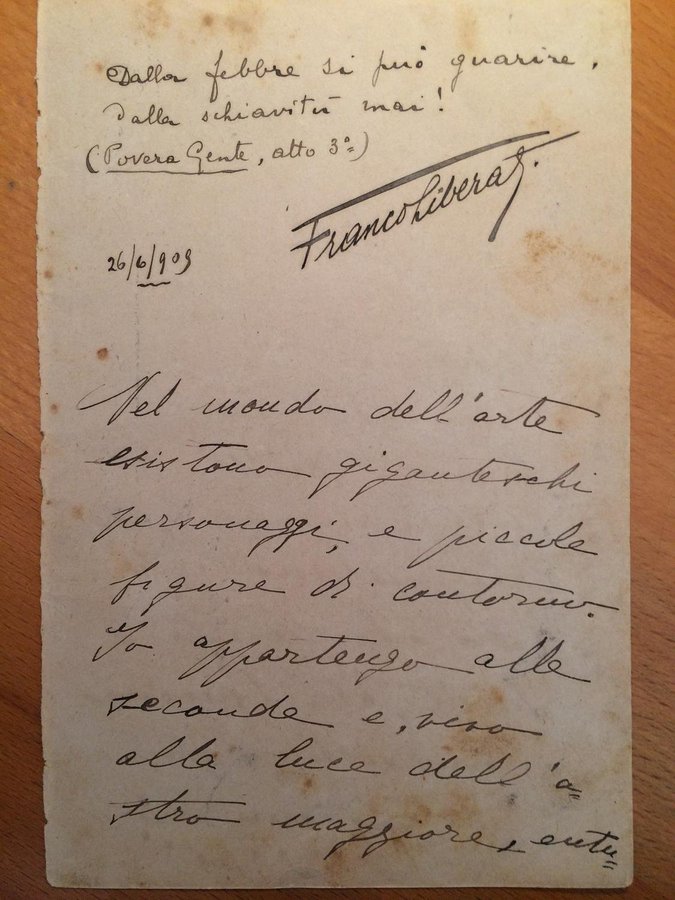 Dalla febbre si può guarire,
dalla schiavitù mai!
(Povera Gente, atto 3º)
Franco Liberati.
26/6/909
Nel mondo dell'arte
esistono giganteschi
personaggi, e piccole
figure di contorno.
Io appartengo alle
seconde e, vivo
alla luce dell'a=
stro maggiore, entu=